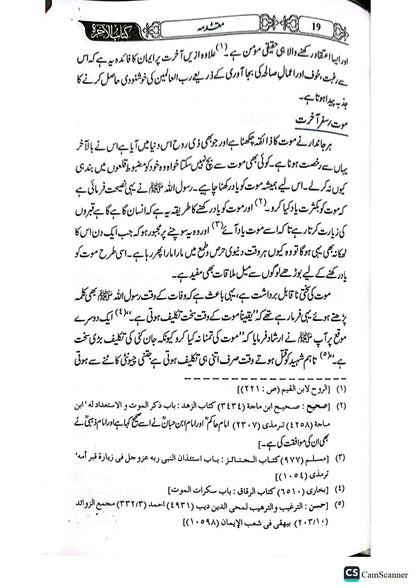 كتاب الآخرة مقدمہ 19
اور ایسا اعتقاد رکھنے والا ہی حقیقی مؤمن ہے۔(۱) علاوہ ازیں آخرت پر ایمان کا فائدہ یہ ہے کہ اس
سے رغبت، خوف اور اعمالِ صالحہ کی بجا آوری کے ذریعے رب العالمین کی خوشنودی حاصل کرنے کا
جذبہ پیدا ہوتا ہے۔
موت اور سفر آخرت
ہر جاندار نے موت کا ذائقہ چکھنا ہے اور جو بھی ذی روح اس دنیا میں آیا ہے اس نے بالآخر
یہاں سے رخصت ہونا ہے۔ کوئی بھی موت سے بچ نہیں سکتا خواہ وہ خود کو مضبوط قلعوں میں بند ہی
کیوں نہ کر لے۔ اس لیے ہمیشہ موت کو یاد رکھنا چاہیے۔ رسول اللہ ﷺ نے یہی نصیحت فرمائی ہے
کہ موت کو بکثرت یاد کیا کرو۔(۲) اور موت کو یاد رکھنے کا طریقہ یہ ہے کہ انسان گاہے گاہے قبروں
کی زیارت کرتا رہے تا کہ اسے موت یاد آئے(۳) اور وہ یہ سوچنے پر مجبور ہو کہ جب ایک دن اس کا
ٹھکانہ بھی یہی ہوگا تو وہ کیوں ہر وقت دنیوی حرص و طمع میں مارا مارا پھر رہا ہے۔ اسی طرح موت کو
یاد رکھنے کے لیے بوڑھے لوگوں سے میل ملاقات بھی مفید ہے۔
موت کی سختی ناقابل برداشت ہے، یہی باعث ہے کہ وفات کے وقت رسول اللہ ﷺ بھی کلمہ
پڑھتے ہوئے یہی فرما رہے تھے کہ ”یقیناً موت کے وقت سخت تکلیف ہوتی ہے۔“(۴) ایک دوسرے
موقع پر آپ ﷺ نے ارشاد فرمایا کہ ”موت کی تمنا نہ کیا کرو کیونکہ جان کنی کی تکلیف بڑی سخت
ہے۔“(۵) تاہم شہید کو قتل ہوتے وقت صرف اتنی ہی تکلیف ہوتی ہے جتنی چیونٹی کاٹنے سے ہوتی
(۱) [الروح لابن القيم (ص : ۲۲۱)]
(۲) [صحيح : صحيح ابن ماجة (۳۴۳۴) كتاب الزهد : باب ذكر الموت و الاستعداد له ' ابن
ماجة (۴۲۵۸) ترمذى (۲۳۰۷) امام حاکمؒ اور امام ابن حبانؒ نے اسے صحیح کہا ہے اور امام ذہبیؒ نے
بھی ان کی موافقت کی ہے۔]
(۳) [مسلم (۹۷۷) كتاب الجنائز : باب استئذان النبى ربه عزوجل فى زيارة قبر أمه '
ترمذى (۱۰۵۴)]
(۴) [بخارى (۶۵۱۰) كتاب الرقاق : باب سكرات الموت]
(۵) [حسن : الترغيب والترهيب لمحى الدين ديب (۴۹۳۱) احمد (۳۳۲/۳) مجمع الزوائد
(۲۰۳/۱۰) بيهقى فى شعب الإيمان (۱۰۵۹۸)]
CS CamScanner